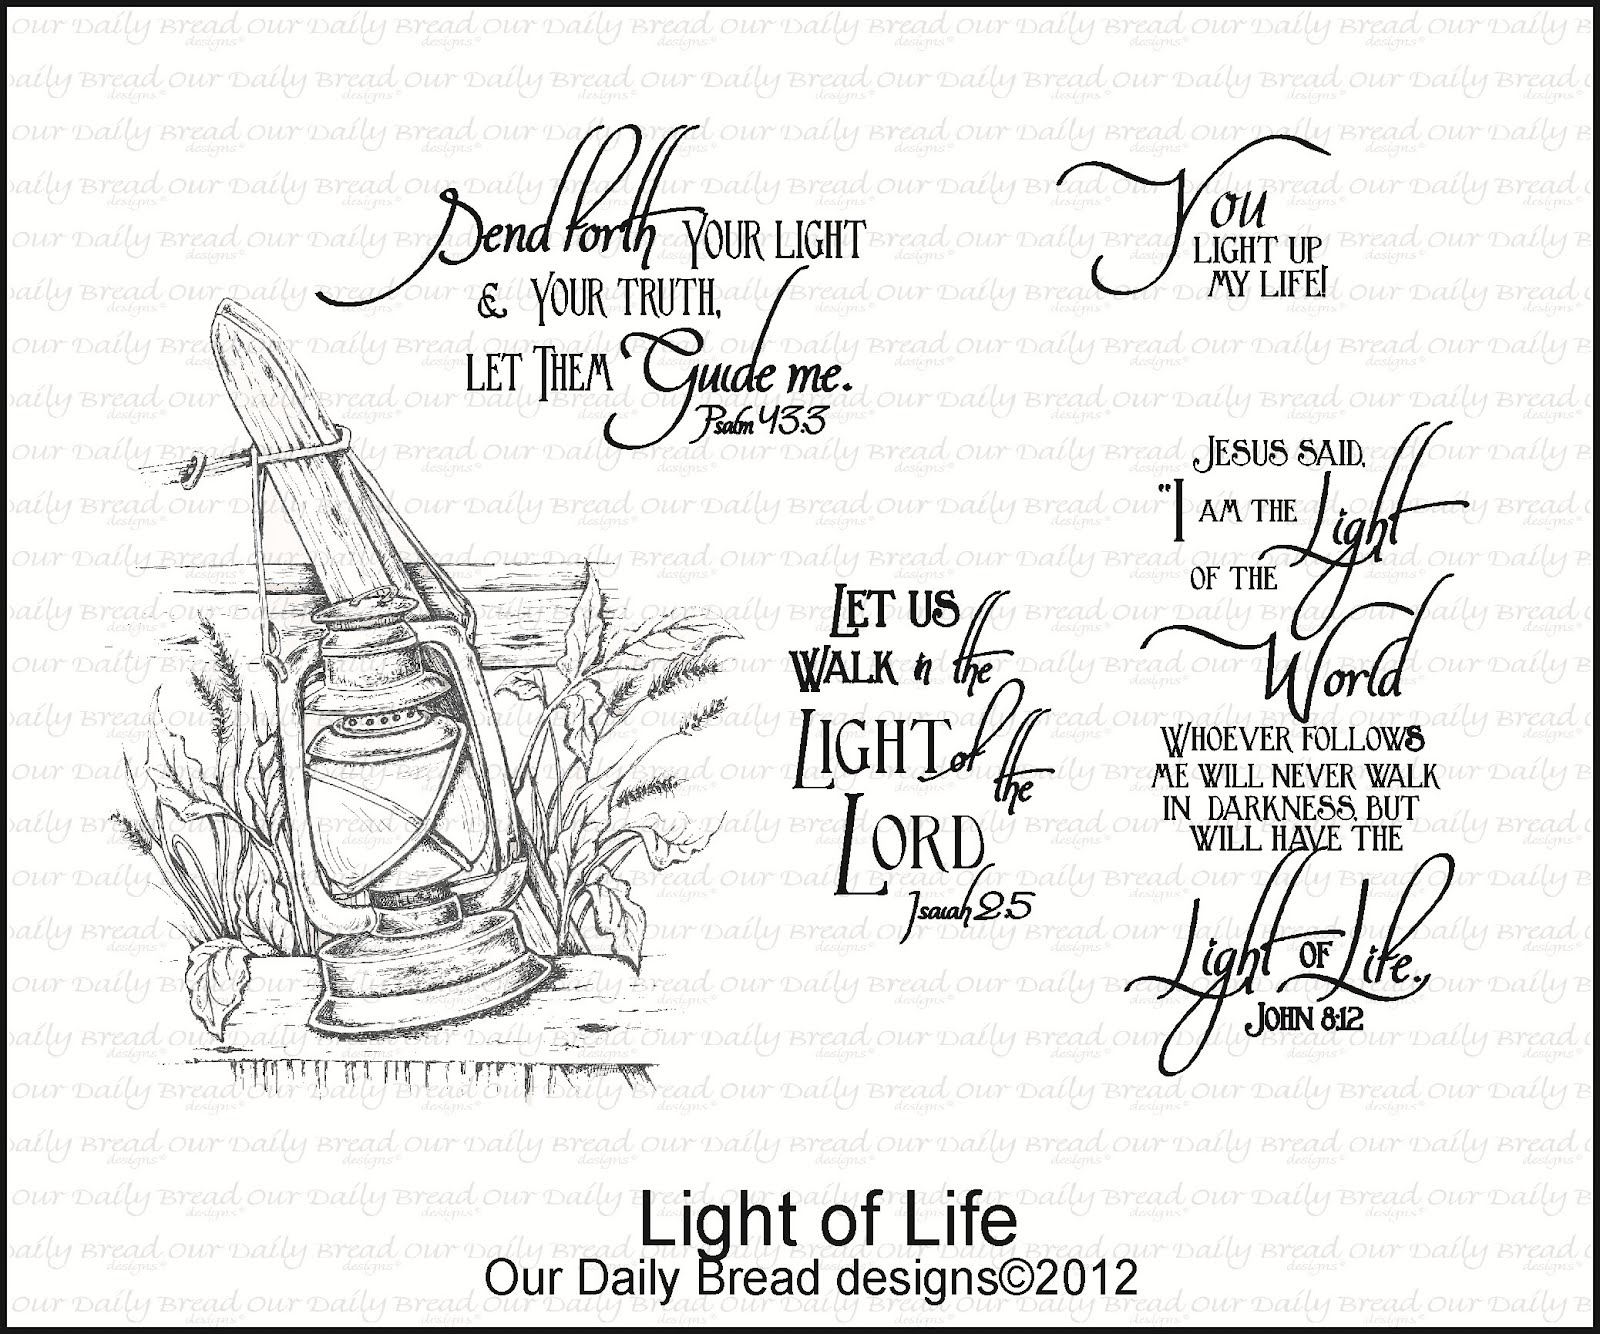 Send forth YOUR LIGHT
& YOUR TRUTH,
LET THEM Guide me.
Psalm 43:3
You
LIGHT UP
MY LIFE!
JESUS SAID,
"I AM THE Light
OF THE
World
WHOEVER FOLLOWS
ME WILL NEVER WALK
IN DARKNESS, BUT
WILL HAVE THE
Light OF Life.,
JOHN 8:12
LET US
WALK in the
LIGHT of the
LORD
Isaiah 2:5
Light of Life
Our Daily Bread designs©2012
Our Daily Bread
designs©